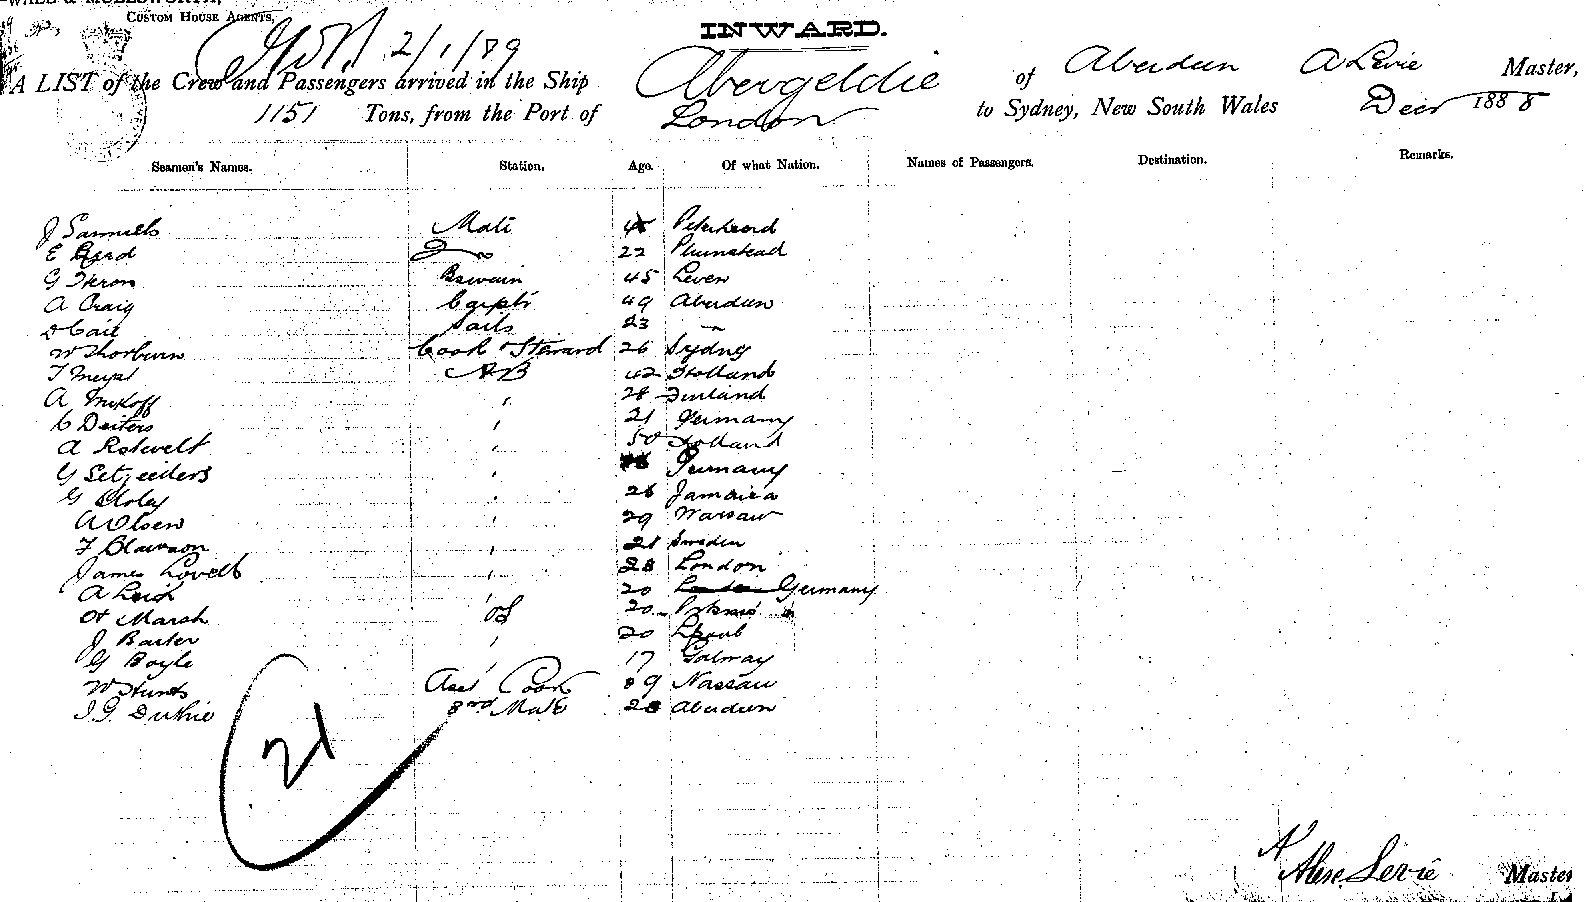 CUSTOM HOUSE AGENTS,
2/1/89
INWARD.
A LIST of the Crew and Passengers arrived in the Ship Abergeldie of Aberdeen A Levie Master,
1151 Tons, from the Port of London to Sydney, New South Wales Decr 1888
Seamen's Names. Station. Age. Of what Nation. Names of Passengers. Destination. Remarks.
J Samuels Mate Peterhead
E 22 Plumstead
G Boswain 45 Leven
A Craig Carptr 49 Aberdeen
D Cait Sails 23 "
W Thorburn Cook & Steward 26 Sydney
T AB 42 Holland
A 28 Finland
C Deiters " 21 Germany
A Rotwelt " 50 Holland
G Setzeiders " Germany
G " 26 Jamaica
A Olsen " 29 Warsaw
F " 21 Sweden
James Lovell " 28 London
A 20 Germany
H Marsh OS 20
J Barter " 20
G Boyle " 17 Galway
W Hunts Asst Cook 39 Nassau
J.G. Duthie 3rd Mate 28 Aberdeen
21
Alexr Levie Master